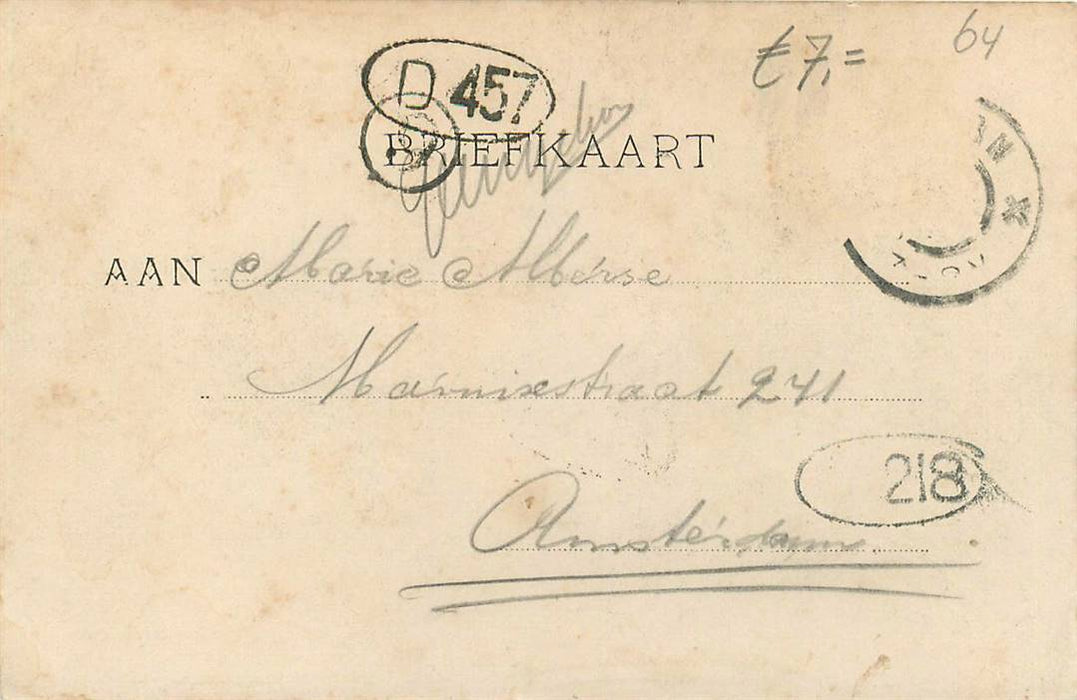 64
€ 7,=
D 457
BRIEFKAART
AAN Marie Alberse
Marnixstraat 241
218
Amsterdam